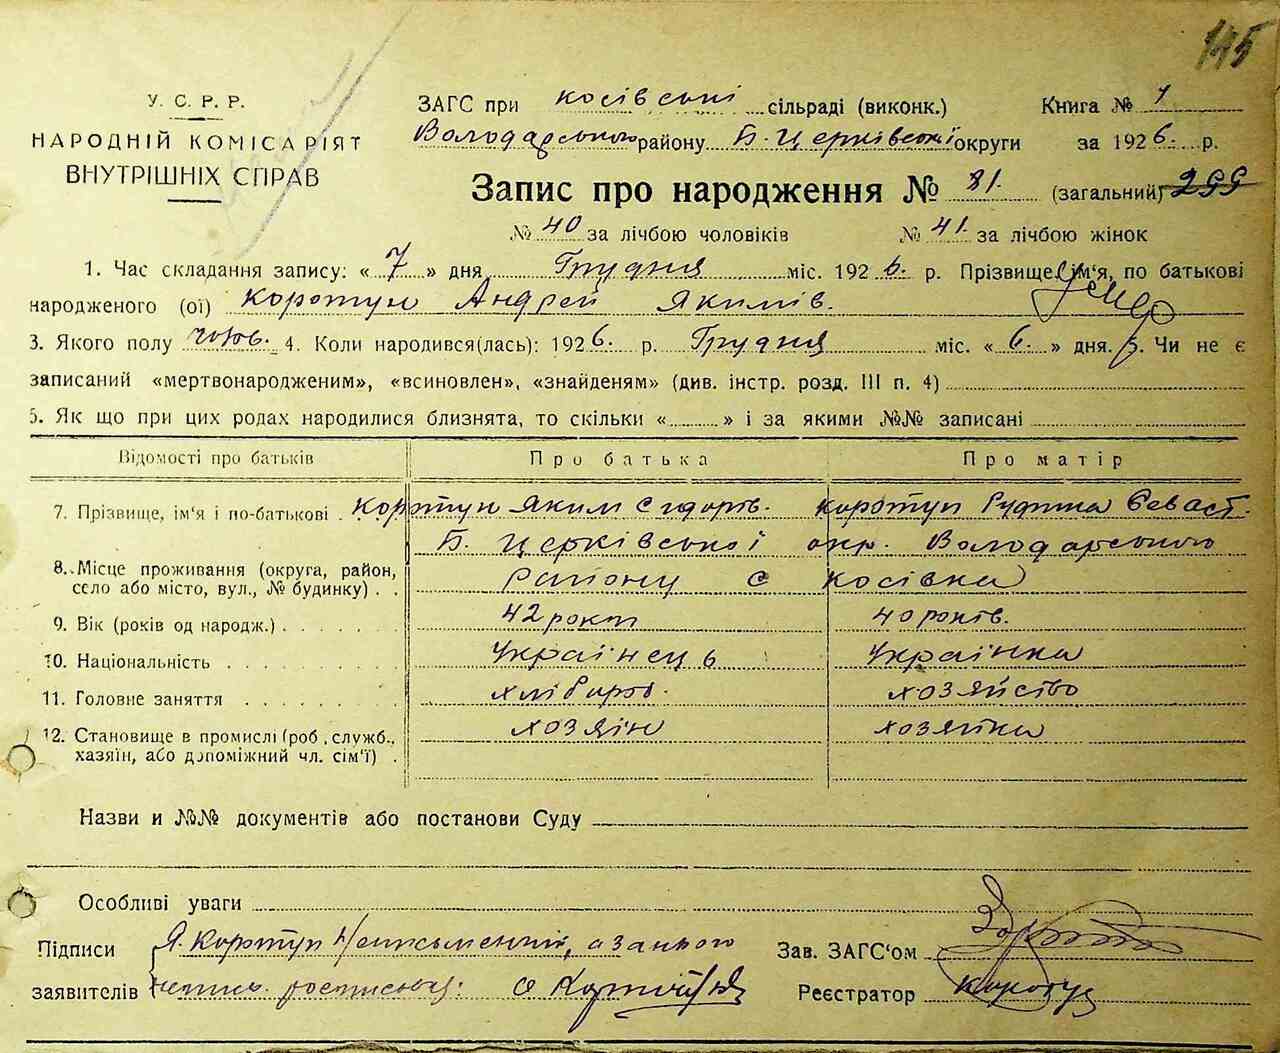 145
У. С. Р. Р.
НАРОДНІЙ КОМІСАРІЯТ
ВНУТРІШНІХ СПРАВ
ЗАГС при косівські сільраді (виконк.) Книга № 1
Володарського району Б. Церківської округи за 1926. р.
Запис про народження № 81. (загальний) 299
№ 40 за лічбою чоловіків № 41. за лічбою жінок
1. Час складання запису: «7» дня Грудня міс. 1926. р. Прізвище, ім'я, по батькові
народженого (ої) Коротун Андрей Якимів.
3. Якого полу чолов. 4. Коли народився(лась): 1926. р. Грудня міс. «6.» дня. Чи не є
записаний «мертвонародженим», «всиновлен», «знайденям» (див. інстр. розд. III п. 4)
5. Як що при цих родах народилися близнята, то скільки « » і за якими №№ записані
Відомості про батьків Про батька Про матір
7. Прізвище, ім'я і по-батькові Коротун Яким Сидорів. Коротун
Б. Церківської окр. Володарського
8. Місце проживання (округа, район, село або місто, вул., № будинку) району с косівка
9. Вік (років од народж.) 42 рокт 40 років.
10. Національність Українець Українка
11. Головне заняття хлібороб. хозяйство
12. Становище в промислі (роб., служб., хазяїн, або допоміжний чл. сім'ї) хозяін хозяйка
Назви и №№ документів або постанови Суду
Особливі уваги
Підписи Я. Коротун Неписьменний, а за нього Зав. ЗАГС'ом
заявителів Реєстратор Коротун